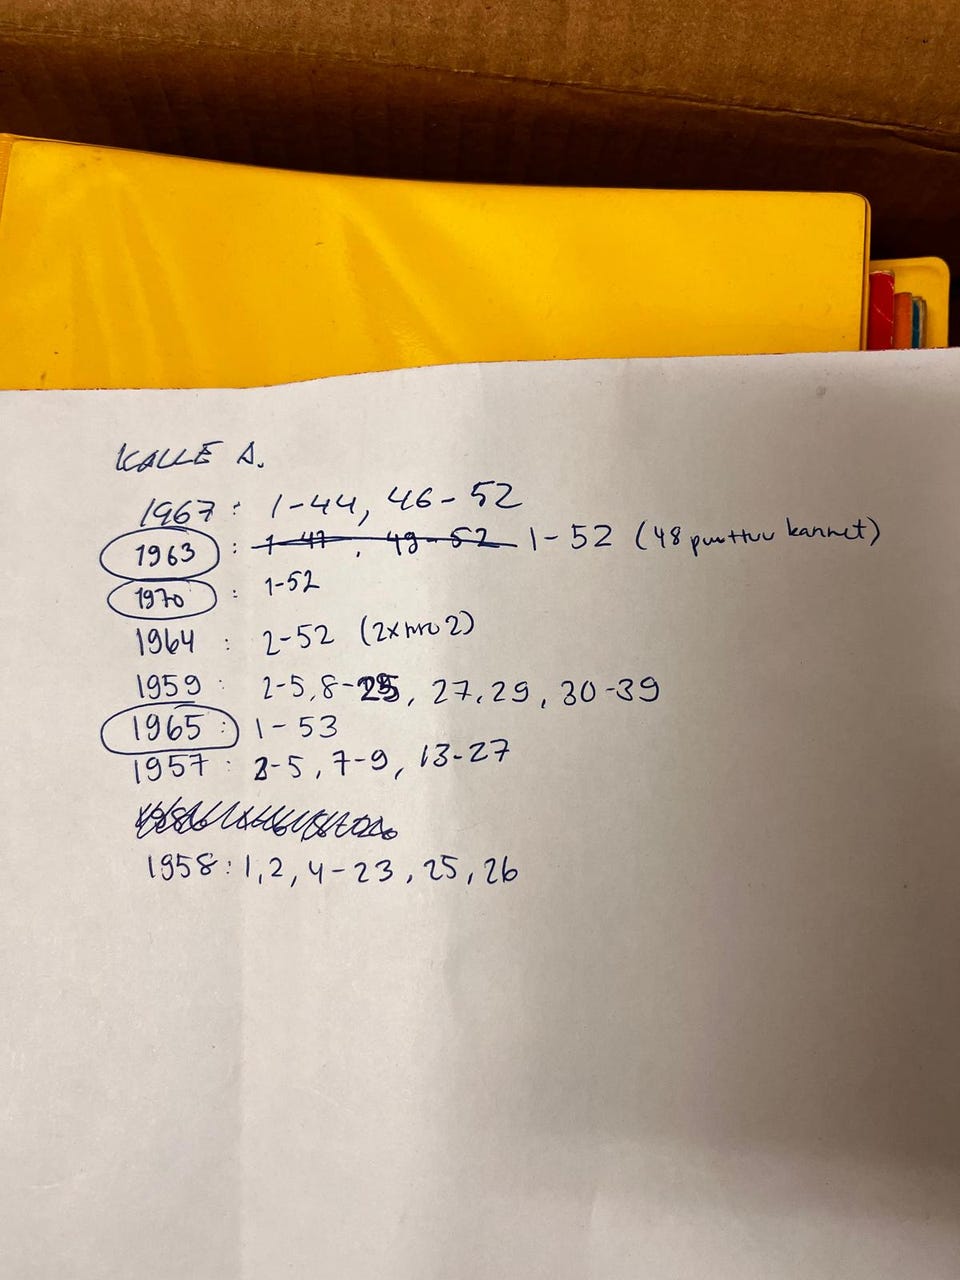 KALLE A.
1967 : 1-44, 46-52
1963 : 1-47, 49-52 1-52 (48 puuttuu kannet)
1970 : 1-52
1964 : 2-52 (2x nro 2)
1959 : 2-5, 8-25, 27, 29, 30-39
1965 : 1-53
1957 : 2-5, 7-9, 13-27
1958 : 1, 2, 4-23, 25, 26